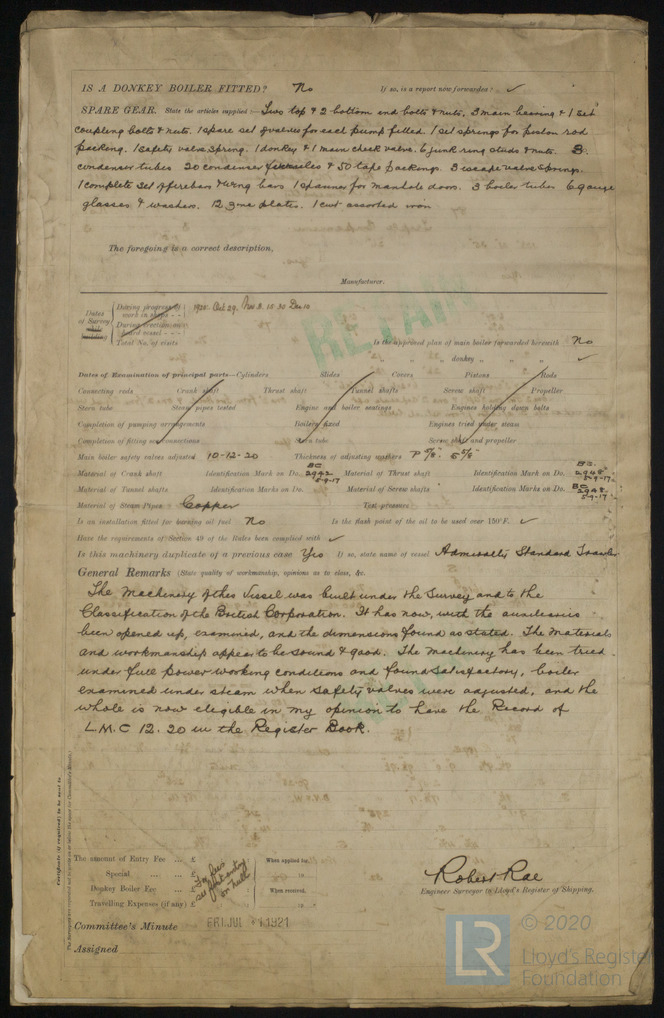 IS A DONKEY BOILER FITTED? No If so, is a report now forwarded? ✓
SPARE GEAR. State the articles supplied:— Two top & 2 bottom end bolts & nuts, 3 main bearing & 1 set
coupling bolts & nuts. 1 spare set of valves for each pump fitted. 1 set springs for piston rod
packing. 1 safety valve spring. 1 donkey & 1 main check valve. 6 junk ring studs & nuts. 3
condenser tubes 20 condenser ferrules & 50 tape packings. 3 escape valve springs.
1 complete set of firebars & wing bars 1 spanner for manhole doors. 3 boiler tubes 6 gauge
glasses & washers. 12 plates. 1 cwt assorted iron
The foregoing is a correct description,
Manufacturer.
RETAIN
Dates of Survey while building
During progress of work in shops - - 1920. Oct 29. Nov 15. 30 Dec 10
During erection on board vessel - - -
Total No. of visits
Is the approved plan of main boiler forwarded herewith No
" " " donkey " " " ✓
Dates of Examination of principal parts—Cylinders Slides Covers Pistons Rods
Connecting rods Crank shaft Thrust shaft Tunnel shafts Screw shaft Propeller
Stern tube Steam pipes tested Engine and boiler seatings Engines holding down bolts
Completion of pumping arrangements Boilers fixed Engines tried under steam
Completion of fitting sea connections Stern tube Screw shaft and propeller
Main boiler safety valves adjusted 10-12-20 Thickness of adjusting washers P 5/8" S 5/8"
Material of Crank shaft Identification Mark on Do. BC 2942 5-9-17 Material of Thrust shaft Identification Mark on Do. BC. 2948 5-9-17
Material of Tunnel shafts Identification Marks on Do. Material of Screw shafts Identification Marks on Do. BC 2948 5-9-17
Material of Steam Pipes Copper Test pressure
Is an installation fitted for burning oil fuel No Is the flash point of the oil to be used over 150°F. ✓
Have the requirements of Section 49 of the Rules been complied with ✓
Is this machinery duplicate of a previous case Yes If so, state name of vessel Admiralty Standard Trawler
General Remarks (State quality of workmanship, opinions as to class, &c.
The Machinery of this Vessel was built under the Survey and to the
Classification of the British Corporation. It has now, with the auxiliaries
been opened up, examined, and the dimensions found as stated. The Materials
and workmanship appear to be sound & good. The machinery has been tried
under full power working conditions and found satisfactory, boiler
examined under steam when safety valves were adjusted, and the
whole is now eligible in my opinion to have the Record of
L.M.C 12. 20 in the Register Book.
Certificate (if required) to be sent to
The amount of Entry Fee ... £
Special ... ... £
Donkey Boiler Fee ... £
Travelling Expenses (if any) £
For fees see first entry on hull
When applied for,
When received,
Robert Rae
Engineer Surveyor to Lloyd's Register of Shipping.
Committee's Minute FRI. JUL 1 1921
Assigned
© 2020
LR
Lloyd's Register
Foundation